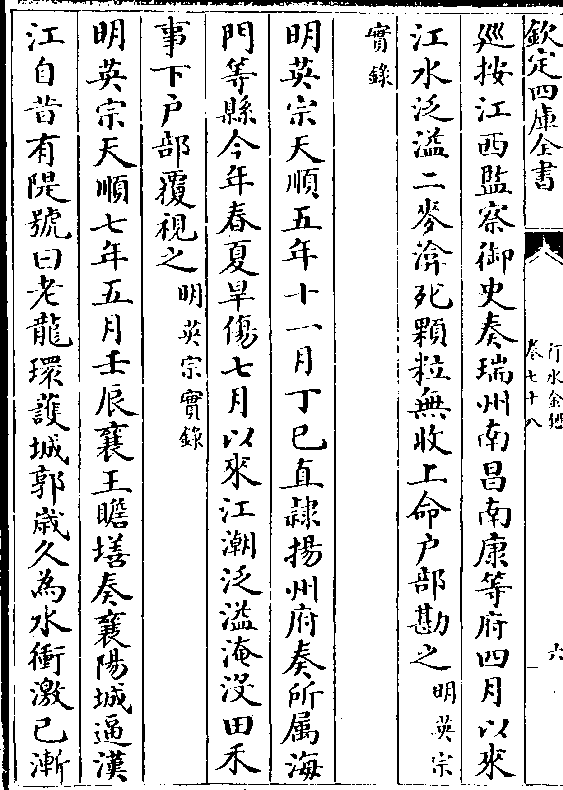 欽定四庫全書
行水金鑑
卷七十八
六
廵按江西監察御史奏瑞州南昌南康等府四月以來
江水泛溢二麥渰死顆粒無收上命户部勘之明英宗
實錄
明英宗天順五年十一月丁巳直隸揚州府奏所属海
門等縣今年春夏旱傷七月以來江潮泛溢淹沒田禾
事下户部覆視之明英宗實錄
明英宗天順七年五月壬辰襄王瞻墡奏襄陽城逼漢
江自昔有隄號曰老龍環護城郭歲久為水衝激已漸